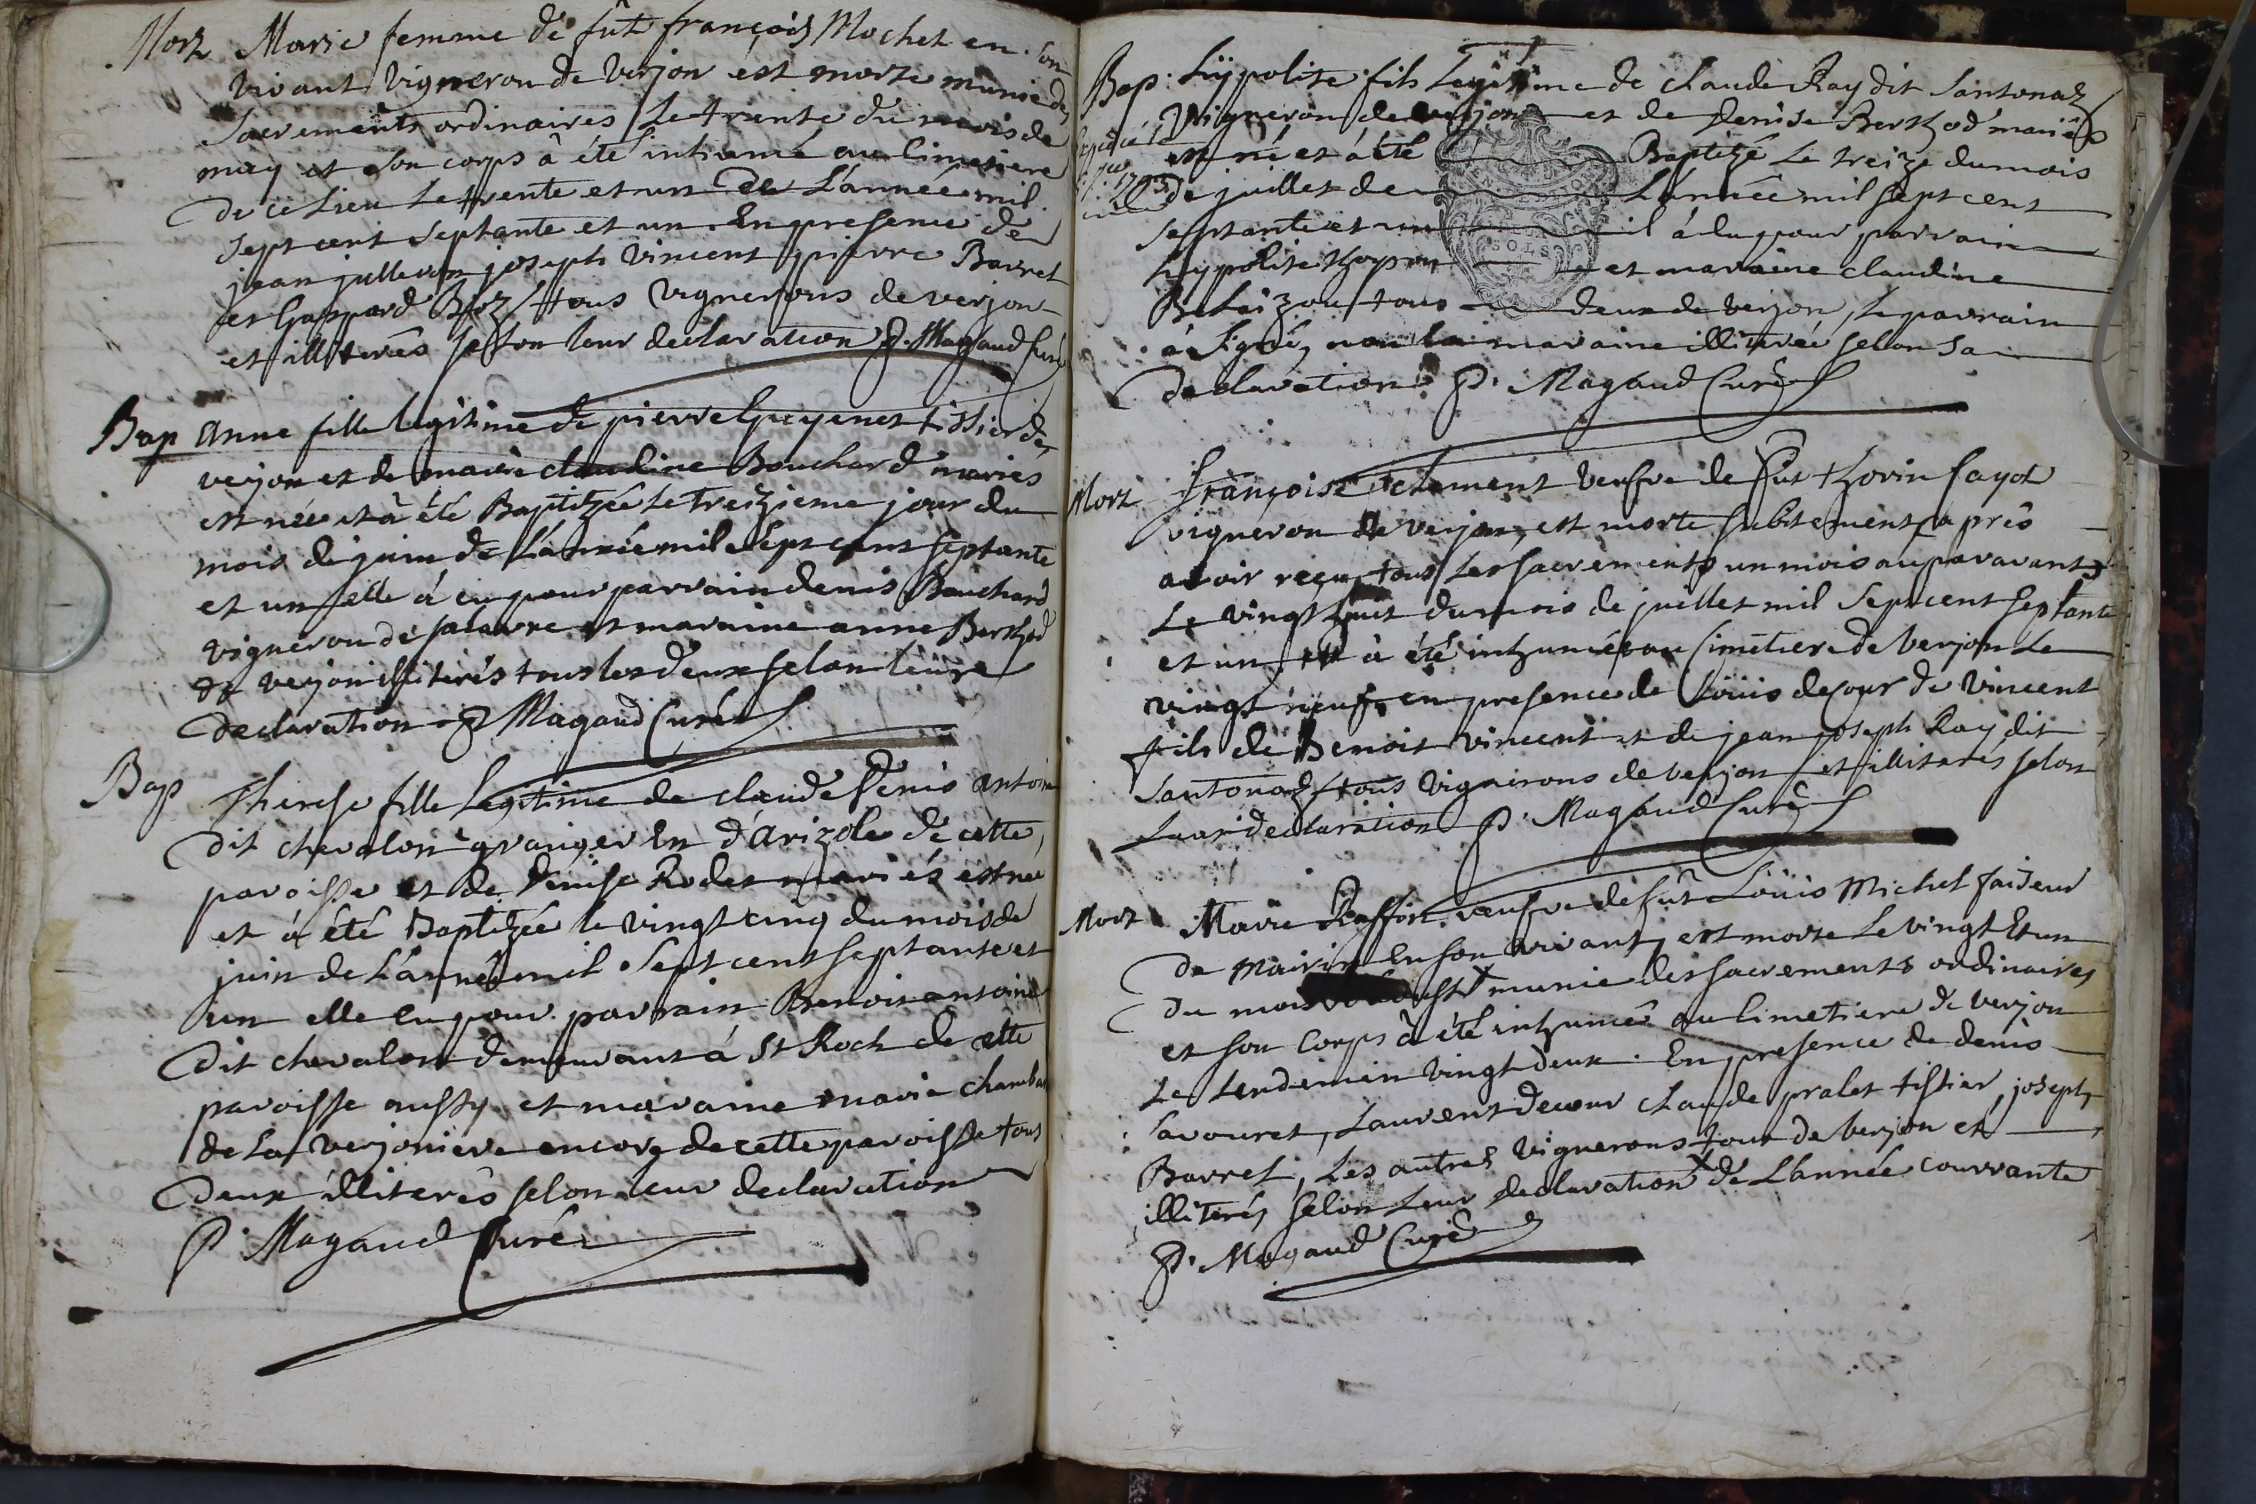 Mort Marie femme de fût françois Mochet en son
vivant vigneron de Verjon est morte munie des
sacrements ordinaires Le trente du mois de
may et son corps à été inhumé au Cimetiere
de ce Lieu Le trente et un de L'année mil
sept cent septante et un En presence de
jean julleron joseph Vincent pierre Barret
et Gaspard tous Vignerons de verjon
et illiterés selon leur declaration P. Magaud Curé
Bap Anne fille legitime de pierre Guyenet tissier de
verjon et de marie claudine Bouchard mariés
est née et à été Baptizée le treizieme jour du
mois de juin de L'année mil sept cent septante
et un elle à eu pour parrain denis Bouchard
vigneron de et maraine anne Berthod
de verjon illiterés tous les deux selon leure
declaration P Magaud Curé
Bap Therese fille Legitime de claude Denis antoine
dit chevalon granger En d'Arizole de cette
paroisse et de Denise Rodet mariés est née
et à été Baptizée le vingt cinq du mois de
juin de L'année mil sept cent septante et
un elle eu pour parrain Benoit antoine
dit chevalon demeurant à St Roch de cette
paroisse aussy et maraine marie
de La verjoniere encore de cette paroisse tous
deux illiterés selon leur declaration
P. Magaud Curé
Bap. hÿppolite fils Legitime de claude Ray dit Santonaz
Vigneron de verjon et de Denise Berthod mariés
est né et à été Baptizé Le treize du mois
de juillet de L'année mil sept cent
septante et un il à eu pour parrain
hyppolite et maraine claudine
tous deux de verjon, Le parrain
à signé, non la maraine illiterée selon sa
declaration P. Magaud Curé
Mort Françoise clement veufve de fût Thorin fayol
vigneron de verjon, est morte subitement après
avoir reçu tous Les sacrements un mois auparavant
Le vingt huit du mois de juillet mil sept cent septante
et un et à été inhumée au Cimetiere de verjon Le
vingt neuf, en presence de Loüis decour de Vincent
fils de Benoit vincent et de jean joseph Ray dit
Santonaz tous vignerons de verjon et illiterés selon
Leur declaration P. Magaud Curé
Mort Marie Raffin veufve de fût Loüis Michel faiseur
de mairin En son vivant, est morte Le vingt Et un
du mois munie des sacrements ordinaires
et son Corps à été inhumé au Cimetiere de verjon
Le Lendemain vingt deux. En presence de denis
Savouret, Laurent decour claude pralet tissier, joseph
Barret, Les autres vignerons tous de verjon et
illiterés selon Leur declaration de L'année courrante
P. Magaud Curé